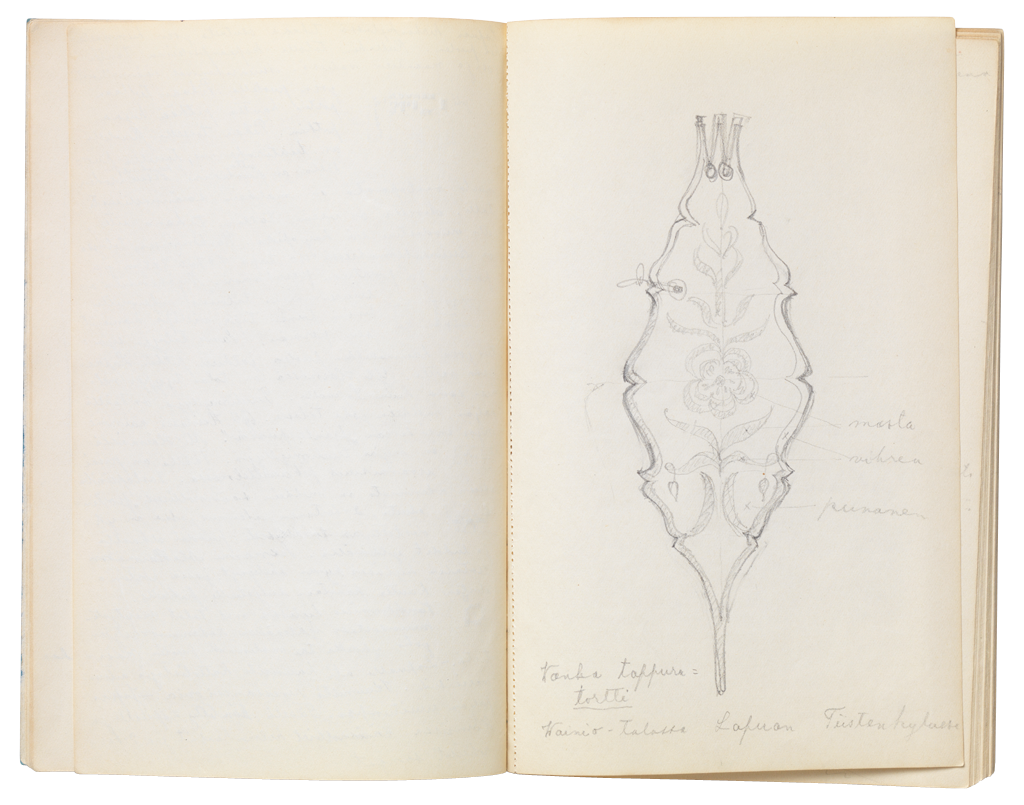 musta
vihrea
punanen
Vanha tappura=
tortti
Wainio-talossa Lapuan Tiistenkylässä